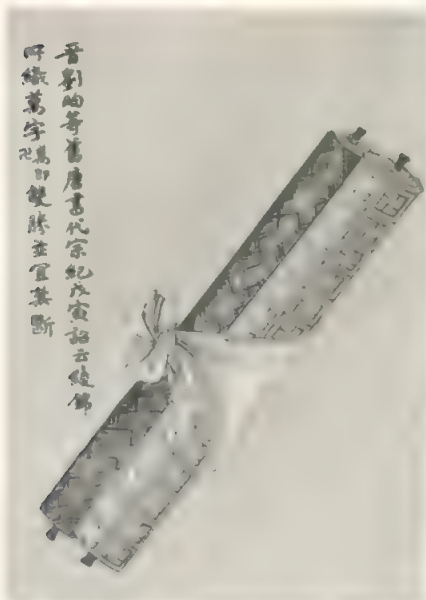 晉劉昫等舊唐書代宗紀戊寅詔云綾錦
所織萬字卍雙勝並宜禁斷